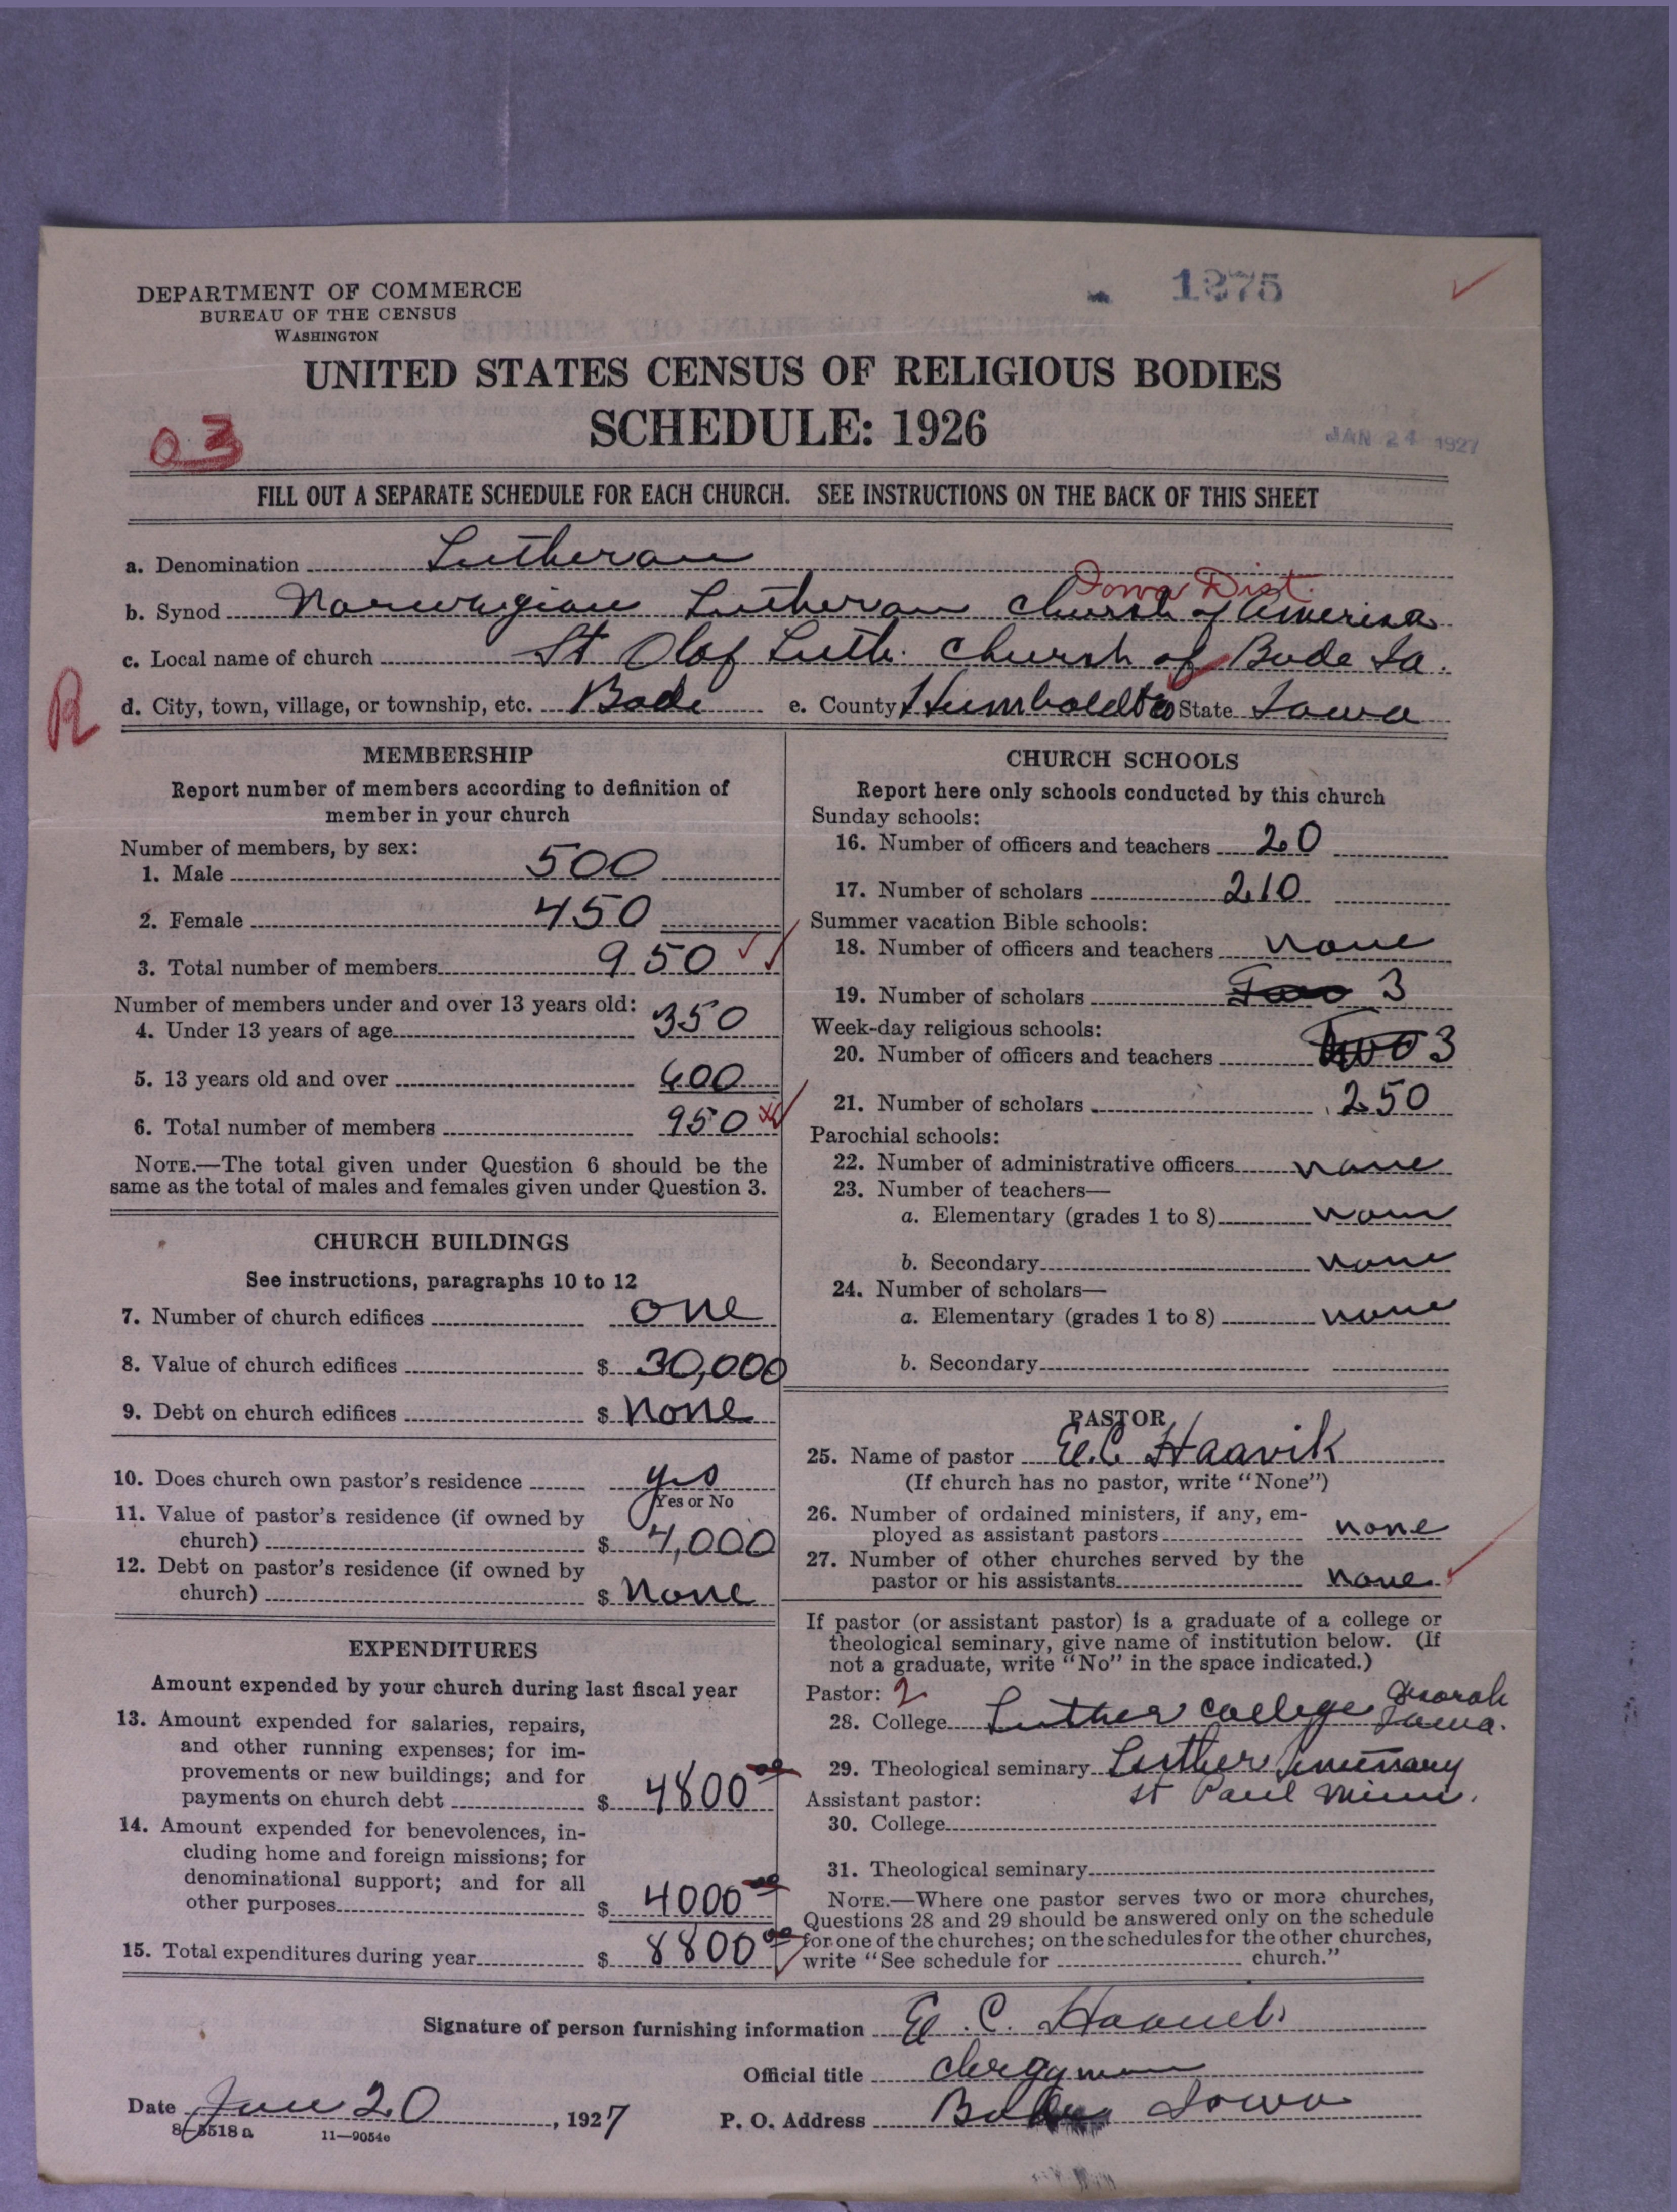 DEPARTMENT OF COMMERCE
BUREAU OF THE CENSUS
WASHINGTON
1275
UNITED STATES CENSUS OF RELIGIOUS BODIES
SCHEDULE: 1926
03
JAN 24 1927
FILL OUT A SEPARATE SCHEDULE FOR EACH CHURCH. SEE INSTRUCTIONS ON THE BACK OF THIS SHEET
a. Denomination Lutheran
Iowa Dist.
b. Synod Norwegian Lutheran Church of America
c. Local name of church St Olaf Luth. Church of Bode Ia.
R
d. City, town, village, or township, etc. Bode e. County Humboldt Co State Iowa
MEMBERSHIP
Report number of members according to definition of
member in your church
Number of members, by sex:
1. Male 500
2. Female 450
3. Total number of members 950
Number of members under and over 13 years old:
4. Under 13 years of age 350
5. 13 years old and over 600
6. Total number of members 950
NOTE.—The total given under Question 6 should be the
same as the total of males and females given under Question 3.
CHURCH BUILDINGS
See instructions, paragraphs 10 to 12
7. Number of church edifices one
8. Value of church edifices $ 30,000
9. Debt on church edifices $ none
10. Does church own pastor's residence yes
Yes or No
11. Value of pastor's residence (if owned by
church) $ 4,000
12. Debt on pastor's residence (if owned by
church) $ none
EXPENDITURES
Amount expended by your church during last fiscal year
13. Amount expended for salaries, repairs,
and other running expenses; for im-
provements or new buildings; and for
payments on church debt $ 4800 00
14. Amount expended for benevolences, in-
cluding home and foreign missions; for
denominational support; and for all
other purposes $ 4000 00
15. Total expenditures during year $ 8800 00
CHURCH SCHOOLS
Report here only schools conducted by this church
Sunday schools:
16. Number of officers and teachers 20
17. Number of scholars 210
Summer vacation Bible schools:
18. Number of officers and teachers none
19. Number of scholars Two 3
Week-day religious schools:
20. Number of officers and teachers two 3
21. Number of scholars 250
Parochial schools:
22. Number of administrative officers none
23. Number of teachers—
a. Elementary (grades 1 to 8) none
b. Secondary none
24. Number of scholars—
a. Elementary (grades 1 to 8) none
b. Secondary
PASTOR
25. Name of pastor E.C. Haavik
(If church has no pastor, write "None")
26. Number of ordained ministers, if any, em-
ployed as assistant pastors none
27. Number of other churches served by the
pastor or his assistants none
If pastor (or assistant pastor) is a graduate of a college or
theological seminary, give name of institution below. (If
not a graduate, write "No" in the space indicated.)
Pastor: 2
28. College Luther College Decorah Iowa.
29. Theological seminary Luther Seminary
St Paul Minn.
Assistant pastor:
30. College
31. Theological seminary
NOTE.—Where one pastor serves two or more churches,
Questions 28 and 29 should be answered only on the schedule
for one of the churches; on the schedules for the other churches,
write "See schedule for church."
Signature of person furnishing information E. C. Haavik
Official title Clergyman
Date Jan 20, 1927 P. O. Address Bode Iowa
8-5518a 11-9054e